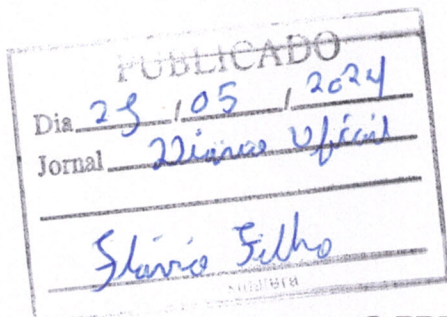 PUBLICADO
Dia 25 / 05 / 2024
Jornal Diário Oficial
Flávio Filho